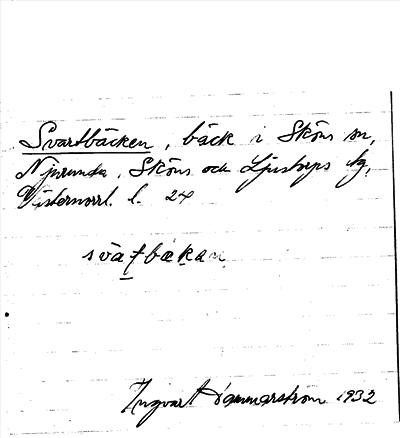 Svartbäcken, bäck i Sköns sn,
Njurunda, Sköns och Ljustorps tg,
Västernorrl. l. 24
svatbäkan
Ingvar Hammarström 1932